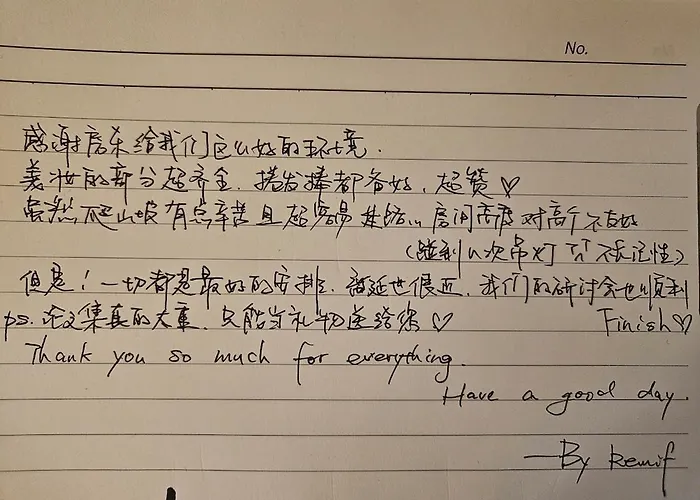 No.
感谢房东给我们这么好的环境.
美妆的部分超齐全. 卷发棒都备好, 超赞♡
虽然爬山坡有点辛苦且超容易 房间高度对高个不友好
(碰到N次吊灯 不长记性)
但是!一切都是最好的安排. 离延世很近, 我们的研讨会也顺利
ps. 论文集真的太重, 只能当礼物送给您♡ Finish♡
Thank you so much for everything.
Have a good day.
—By Remif